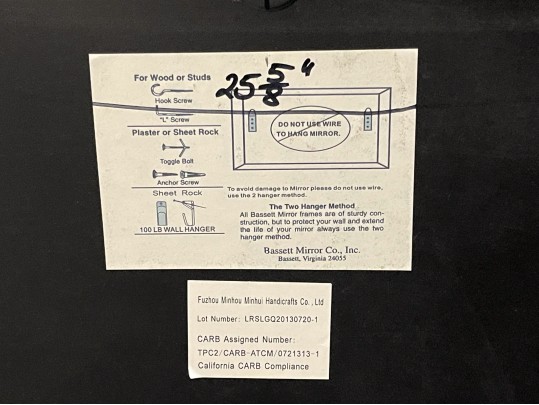 For Wood or Studs
Hook Screw
"L" Screw
Plaster or Sheet Rock
Toggle Bolt
Anchor Screw
Sheet Rock
100 LB WALL HANGER
25 5/8 "
DO NOT USE WIRE
TO HANG MIRROR.
To avoid damage to Mirror please do not use wire,
use the 2 hanger method.
The Two Hanger Method
All Bassett Mirror frames are of sturdy con-
struction, but to protect your wall and extend
the life of your mirror always use the two
hanger method.
Bassett Mirror Co., Inc.
Bassett, Virginia 24055
Fuzhou Minhou Minhui Handicrafts Co., Ltd
Lot Number: LRSLGQ20130720-1
CARB Assigned Number:
TPC2/CARB-ATCM/0721313-1
California CARB Compliance